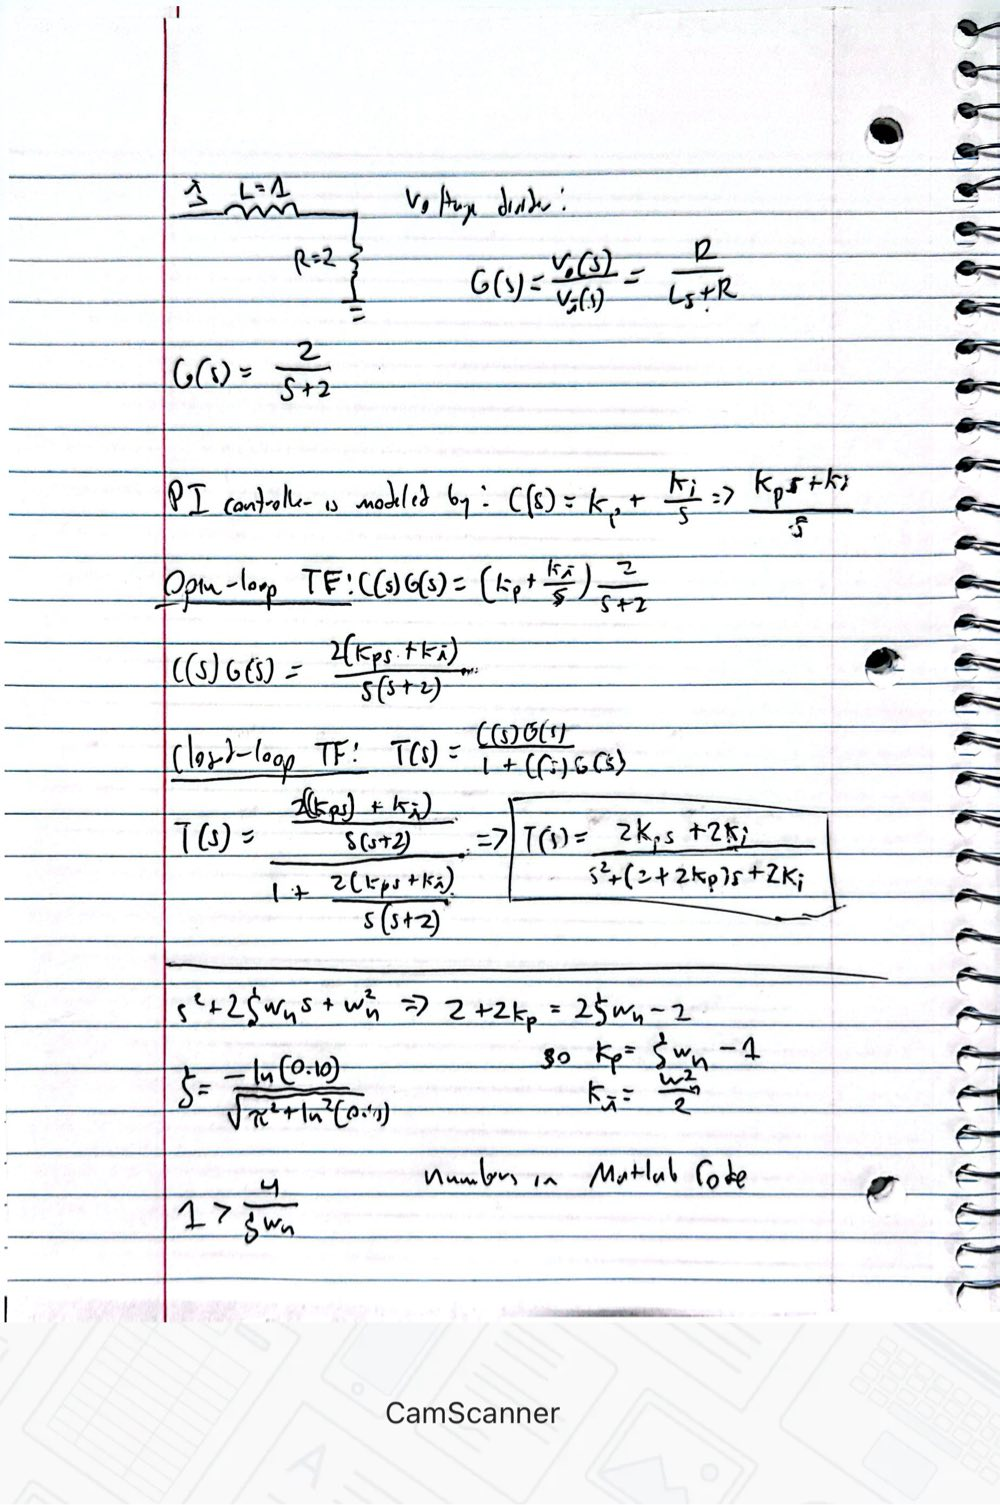 i L=1 Voltage divider:
R=2 G(s) = Vo(s)/Vi(s) = R/(Ls+R)
G(s) = 2/(s+2)
PI controller is modeled by: C(s) = Kp + Ki/s => (Kps+Ki)/s
Open-loop TF: C(s)G(s) = (Kp + Ki/s) 2/(s+2)
C(s)G(s) = 2(Kps+Ki)/(s(s+2))
Closed-loop TF: T(s) = C(s)G(s)/(1+C(s)G(s))
T(s) = (2(Kps)+Ki)/(s(s+2)) / (1 + 2(Kps+Ki)/(s(s+2))) => T(s) = (2Kps+2Ki)/(s²+(2+2Kp)s+2Ki)
s²+2ζωns+ωn² => 2+2Kp = 2ζωn-2
so Kp = ζωn-1
ζ = -ln(0.10)/√(π²+ln²(0.10)) Ki = ωn²/2
Numbers in Matlab Code
1 > 4/(ζωn)
CamScanner